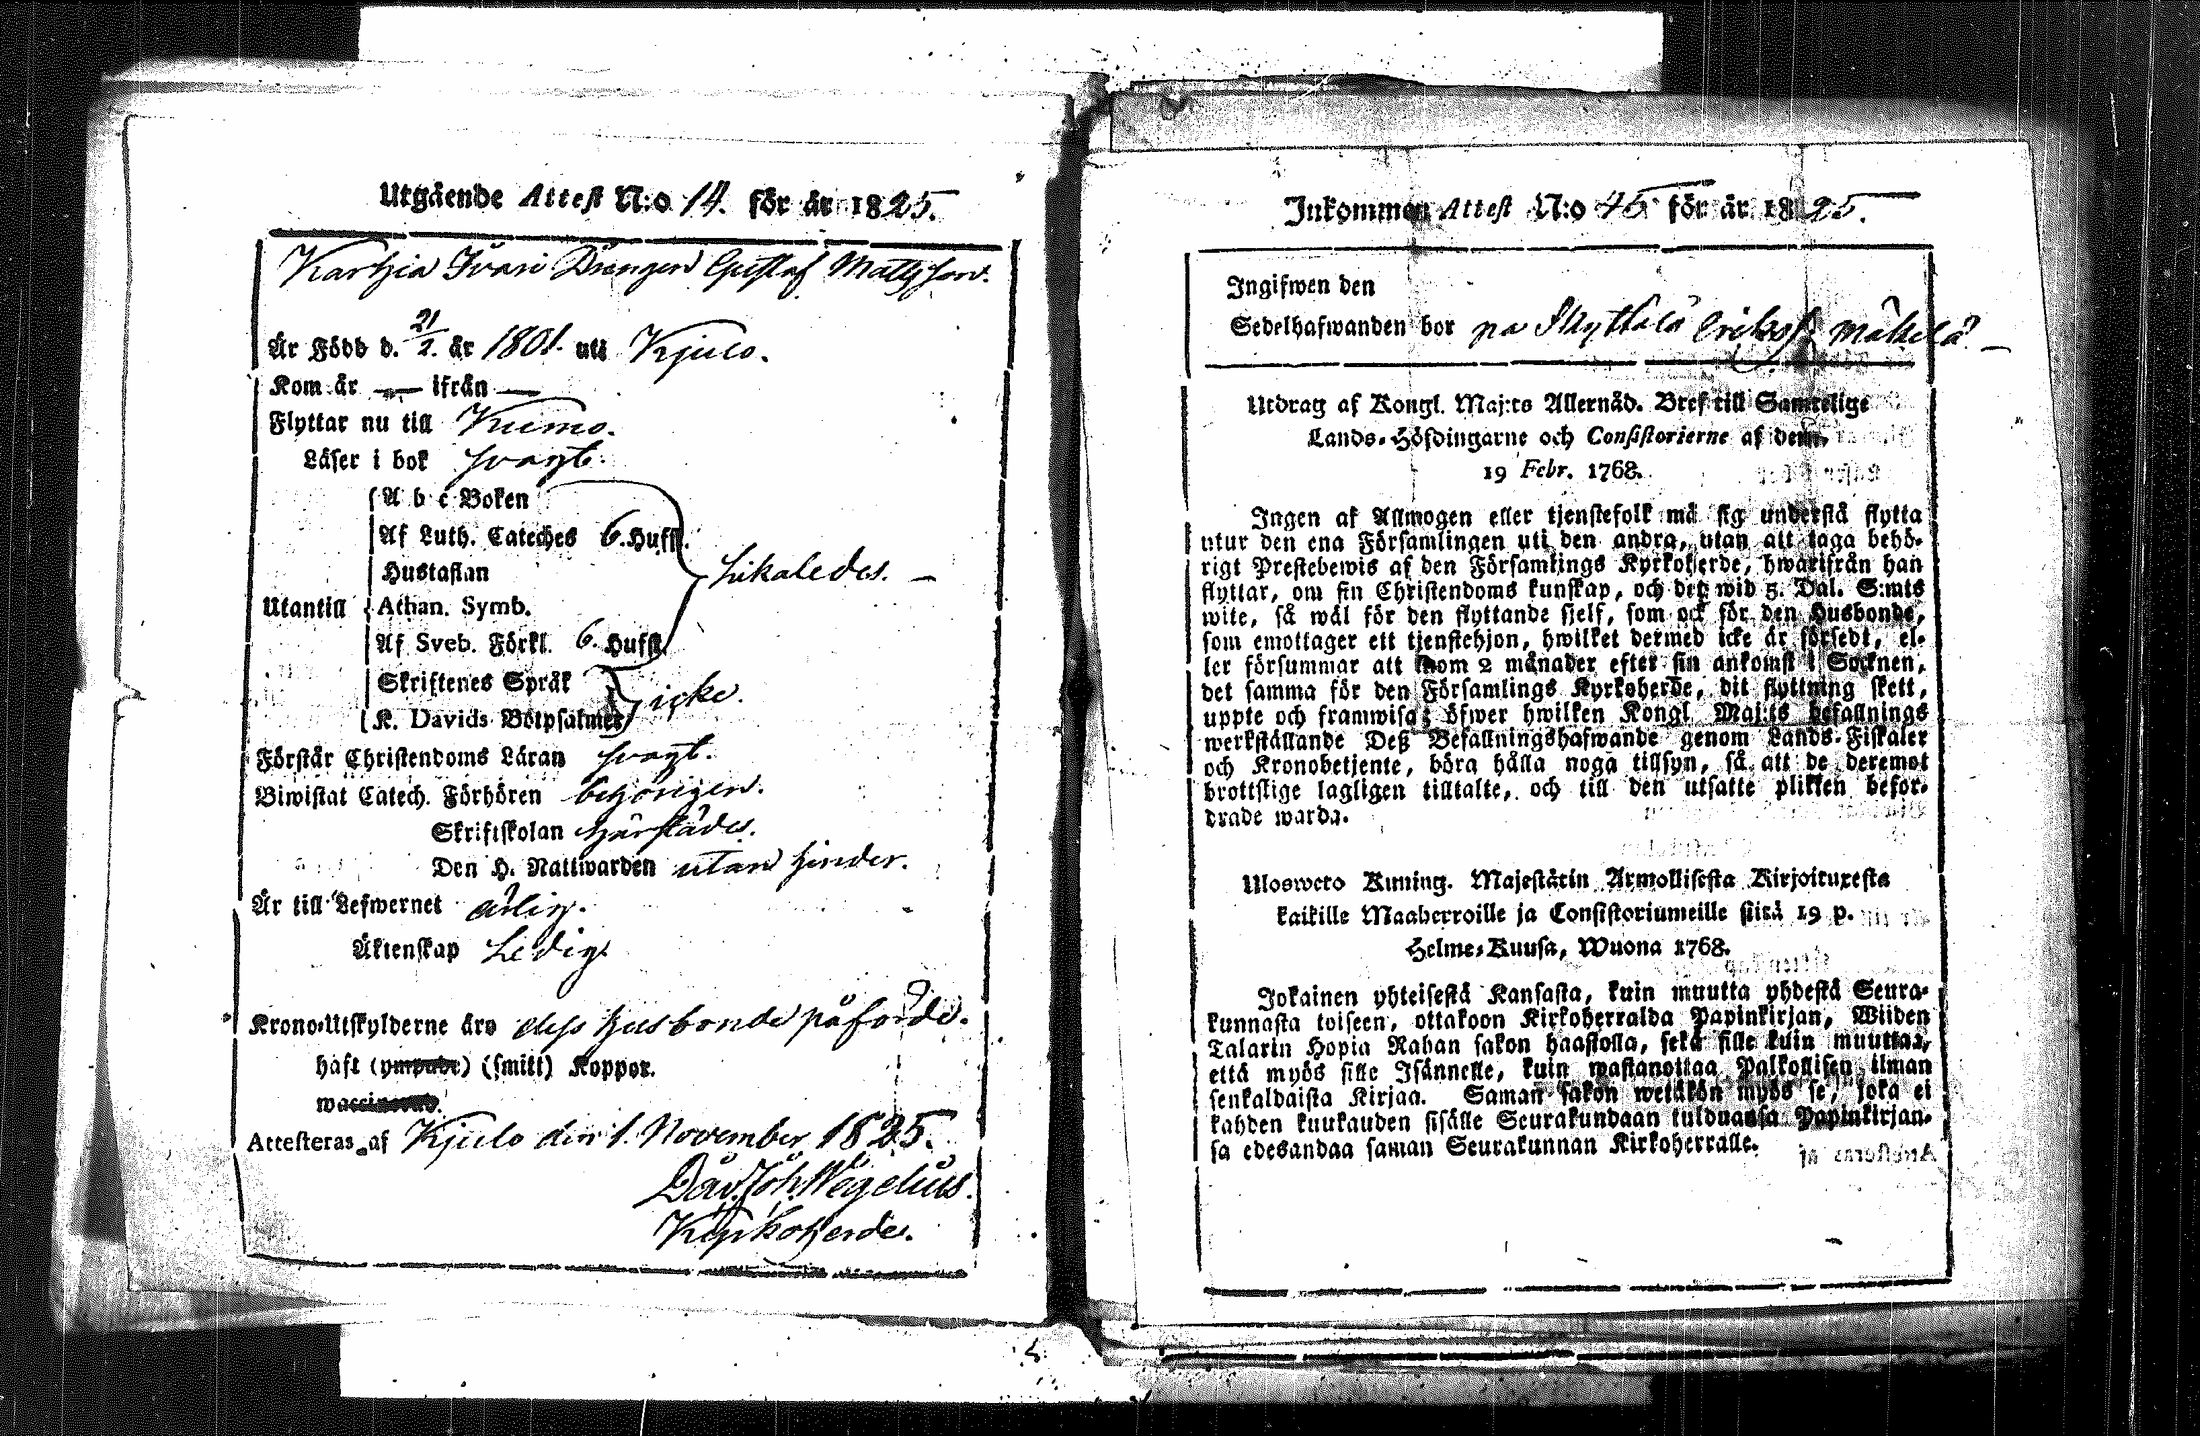 Utgående Attest N:o 14. för år 1825.
Karhia Ivari Drängen Gustaf Mattsson.
Är Född d. 21/2. år 1801. uti Kjulo.
Kom år — ifrån —
Flyttar nu till Kumo.
Läser i bok svagt.
A b c Boken
Af Luth. Cateches 6. Hufst.
Hustaflan
likaledes. —
Utantill Athan. Symb.
Af Sveb. Förkl. 6. Hufst.
Skriftenes Språk
icke.
K. Davids Botpsalmer
Förstår Christendoms Läran svagt.
Biwistat Catech. Förhören behörigen.
Skriftskolan härstädes.
Den H. Nattwarden utan hinder.
Är till Lefwernet ärlig.
Äktenskap Ledig
Krono-Utskylderne äro dess husbonde påförde.
haft (ympade) (smitt) Koppor.
waccinerad.
Attesteras af Kjulo den 1. November 1825.
Dav. Joh. Wegelius.
Kyrkoherde.
Inkommen Attest N:o 45 för år 1825.
Ingifwen den
Sedelhafwanden bor på Skyttälä Erikss. Mäkelä. —
Utdrag af Kongl. Maj:ts Allernåd. Bref till Samtelige
Lands-Höfdingarne och Consistorierne af den
19 Febr. 1768.
Ingen af Allmogen eller tjenstefolk må sig understå flytta
utur den ena Församlingen uti den andra, utan att taga behö-
rigt Prestebewis af den Församlings Kyrkoherde, hwarifrån han
flyttar, om sin Christendoms kunskap, och det wid 5. Dal. S:mts
wite, så wäl för den flyttande sjelf, som ock för den Husbonde,
som emottager ett tjenstehjon, hwilket dermed icke är försedt, el-
ler försummar att inom 2 månader efter sin ankomst i Socknen,
det samma för den Församlings Kyrkoherde, dit flyttning skett,
uppte och framwisa; öfwer hwilken Kongl. Maj:ts befallnings
werkställande Deß Befallningshafwande genom Lands-Fiskaler
och Kronobetjente, böra hålla noga tillsyn, så att de deremot
brottslige lagligen tilltalte, och till den utsatte plikten befor-
drade warda.
Ulosweto Kuning. Majestätin Armollisesta Kirjoituxesta
kaikille Maaherroille ja Consistoriumeille siitä 19 p.
Helme-Kuusa, Wuona 1768.
Jokainen yhteisestä Kansasta, kuin muutta yhdestä Seura-
kunnasta toiseen, ottakoon Kirkoherralda Papinkirjan, Wiiden
Talarin Hopia Rahan sakon haastolla, sekä sille kuin muuttaa,
että myös sille Isännelle, kuin wastanottaa Palkollisen ilman
senkaldaista Kirjaa. Saman sakon wetäkön myös se, joka ei
kahden kuukauden sisälle Seurakundaan tulduansa Papinkirjan-
sa edesandaa saman Seurakunnan Kirkoherralle.